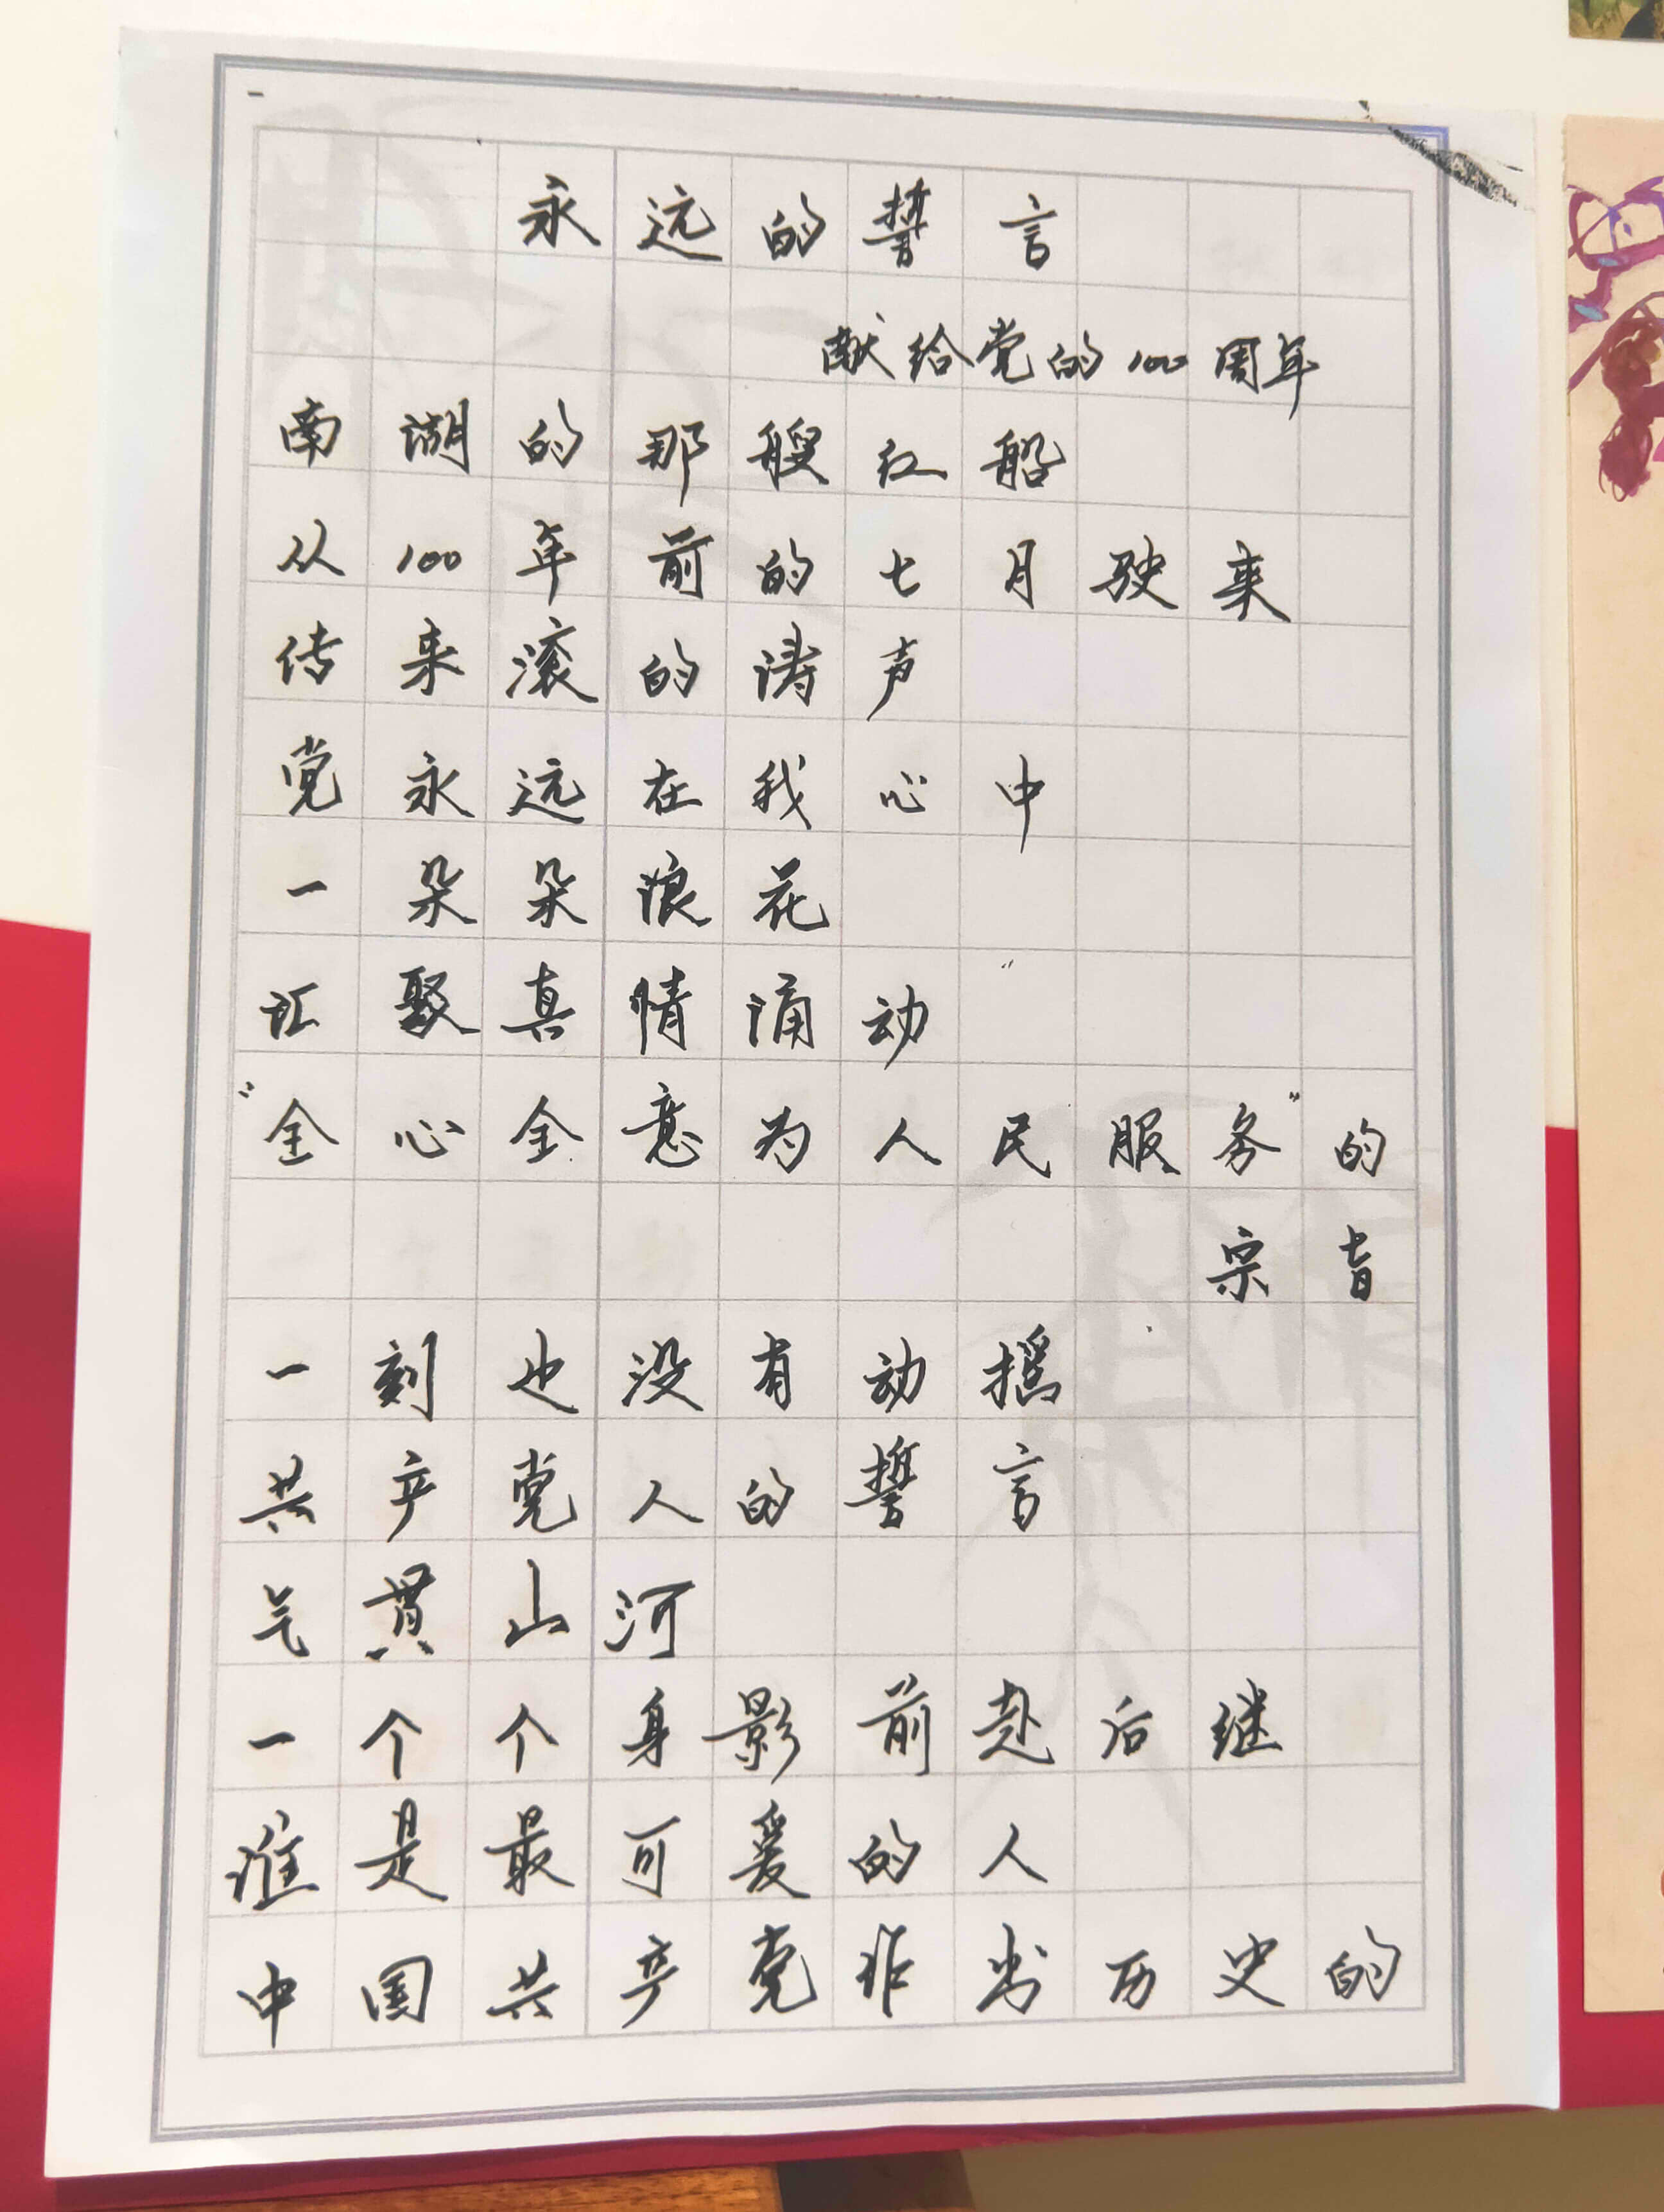 永远的誓言
献给党的100周年
南湖的那艘红船
从100年前的七月驶来
传来滚的涛声
党永远在我心中
一朵朵浪花
汇聚真情涌动
"全心全意为人民服务"的
宗旨
一刻也没有动摇
共产党人的誓言
气贯山河
一个个身影前赴后继
谁是最可爱的人
中国共产党作出历史的